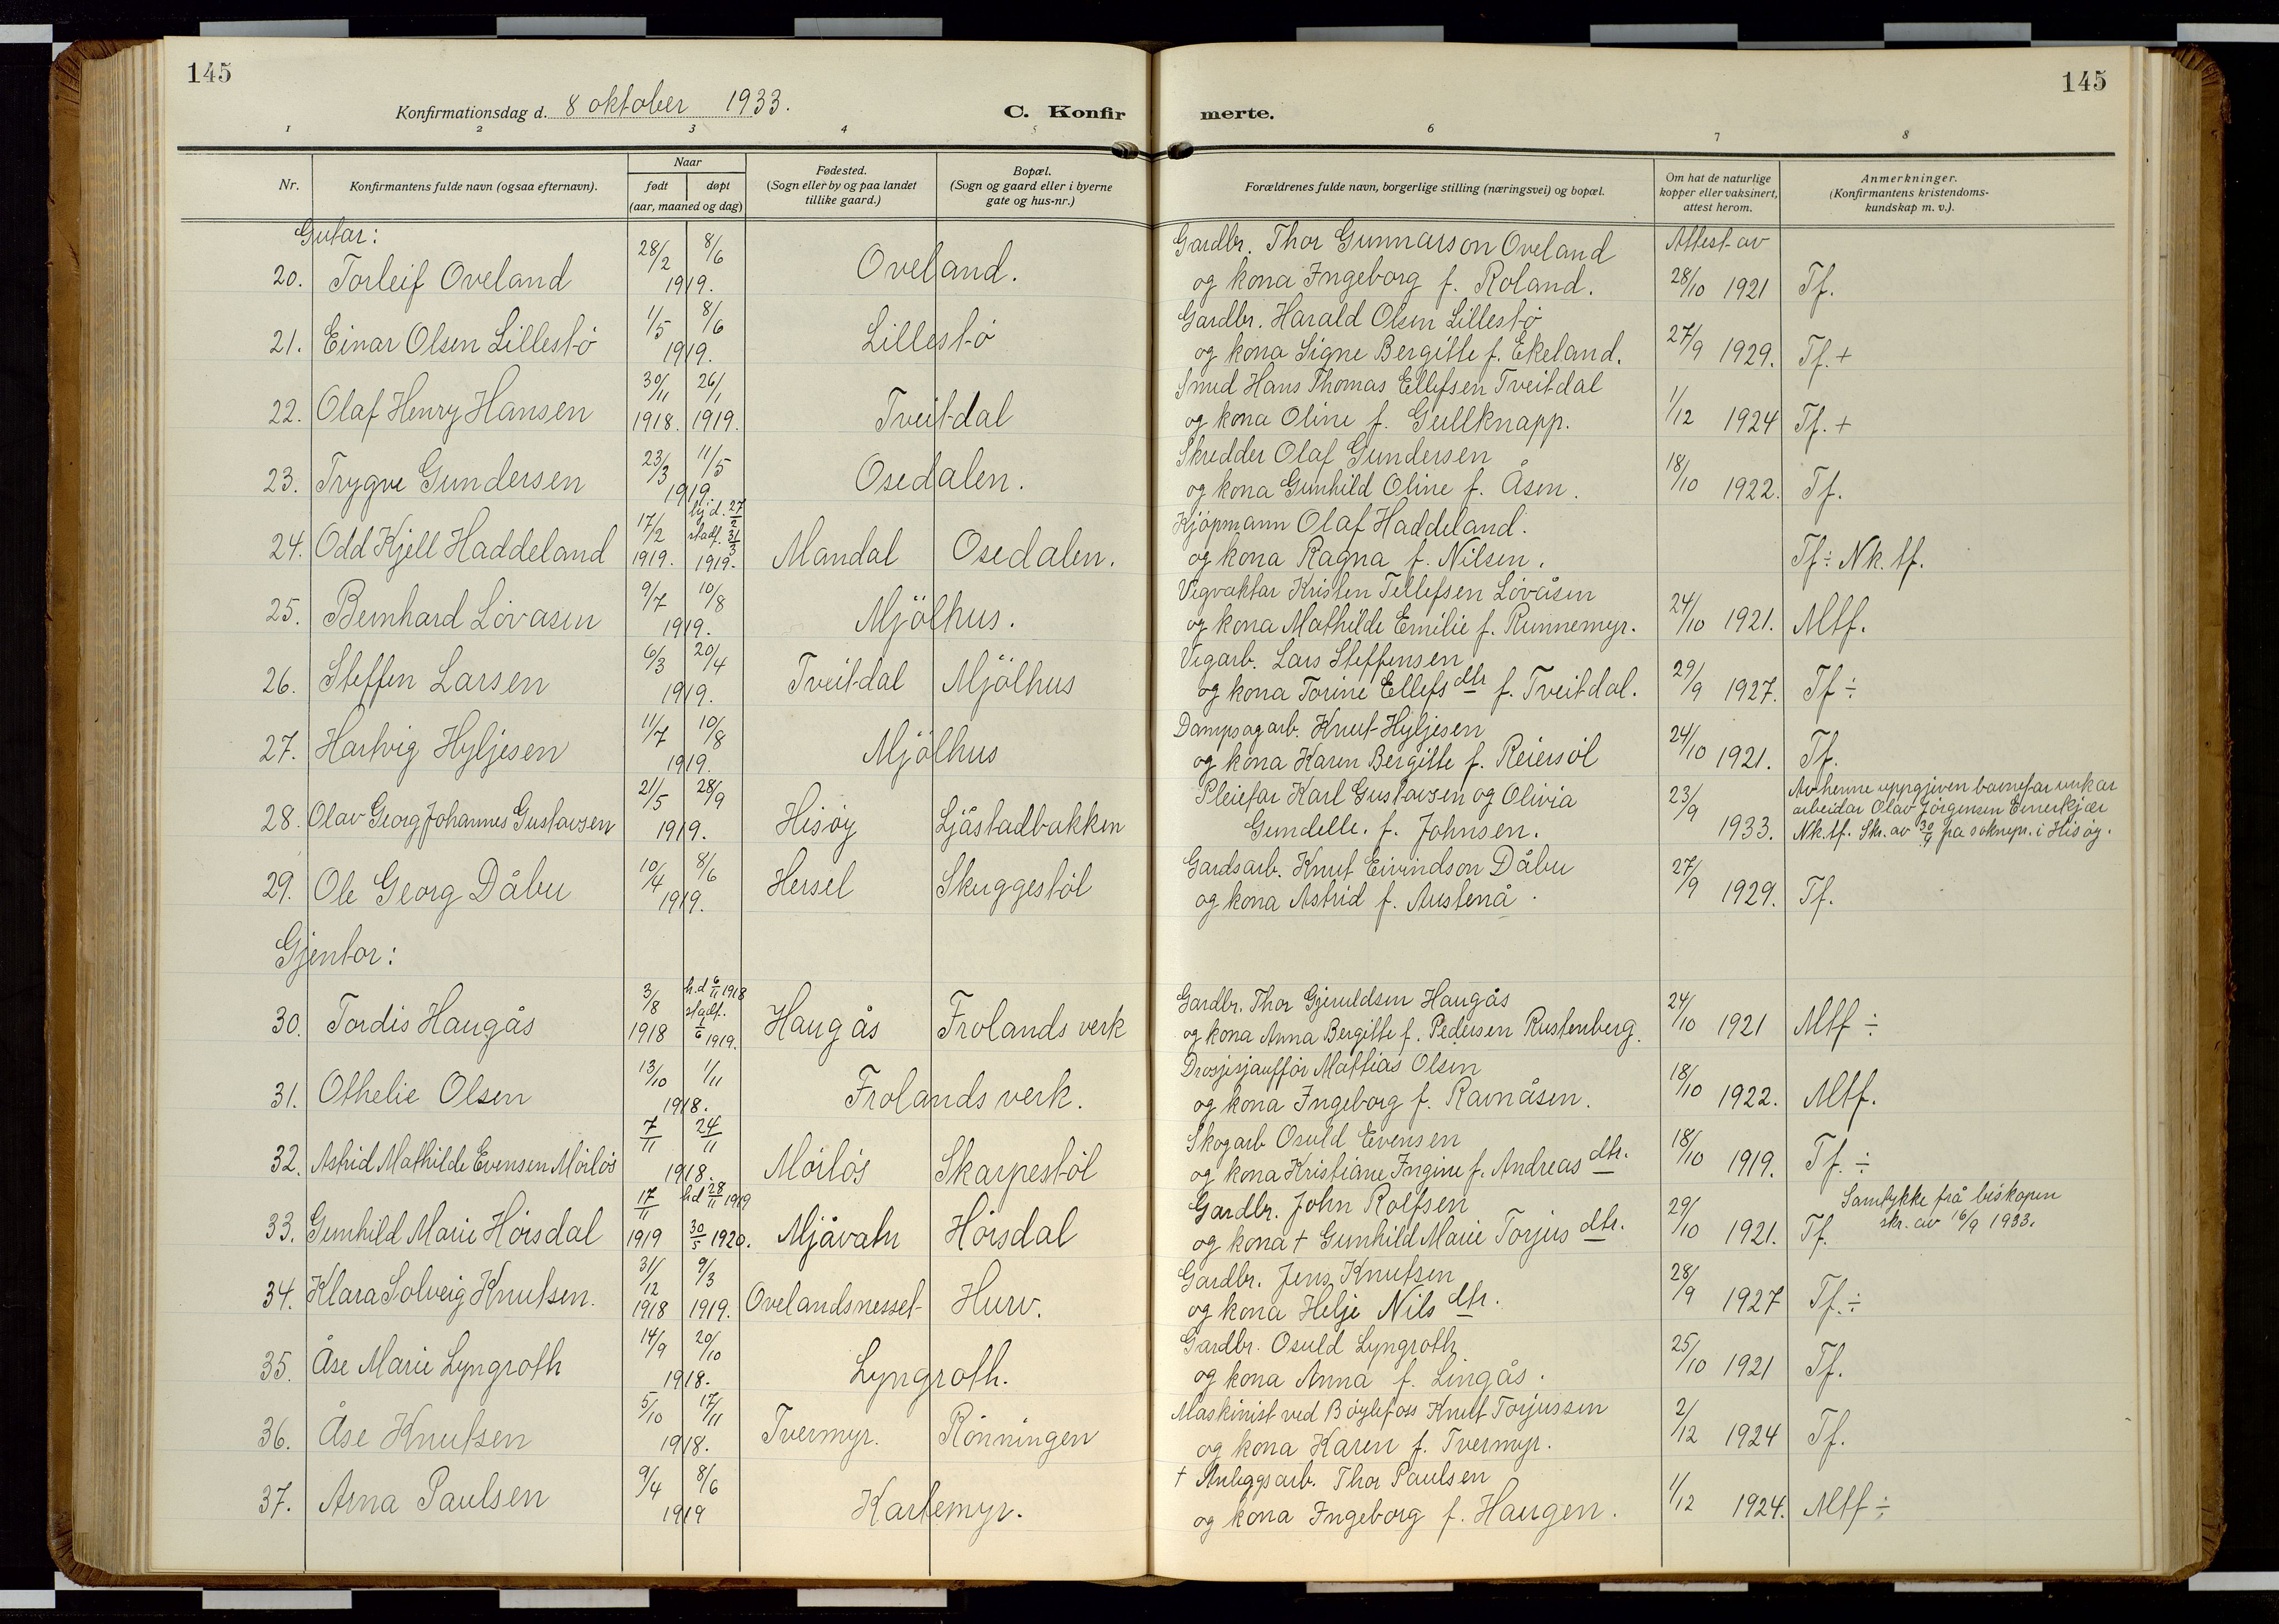 145
145
Konfirmationsdag d. 8 oktober 1933.
C. Konfir merte.
1 2 3 4 5 6 7 8
Nr.
Konfirmantens fulde navn (ogsaa efternavn).
Naar
født døpt
(aar, maaned og dag)
Fødested.
(Sogn eller by og paa landet
tillike gaard.)
Bopæl.
(Sogn og gaard eller i byerne
gate og hus-nr.)
Forældrenes fulde navn, borgerlige stilling (næringsvei) og bopæl.
Om hat de naturlige
kopper eller vaksinert,
attest herom.
Anmerkninger.
(Konfirmantens kristendoms-
kundskap m. v.).
Gutar:
Attest av
28/2 8/6 Gardbr. Thor Gunnarson Oveland
20. Torleif Oveland 1919. Oveland. og kona Ingeborg f. Roland. 28/10 1921 Tf.
1/5 8/6 Gardbr. Harald Olsen Lillestö
21. Einar Olsen Lillestö 1919. Lillestö og kona Signe Bergitte f. Ekeland. 27/9 1929. Tf. +
30/11 26/1 Smed Hans Thomas Ellefsen Tveitdal
22. Olaf Henry Hansen 1918. 1919. Tveitdal og kona Oline f. Gullknapp. 1/12 1924 Tf. +
23/3 11/5 Skredder Olaf Gundersen
23. Trygve Gundersen 1919. Osedalen. og kona Gunhild Oline f. Åsen. 18/10 1922. Tf.
17/2 hj.d. 27/2 stadf. 31/3 Kjöpmann Olaf Haddeland.
24. Odd Kjell Haddeland 1919. 1919. Mandal Osedalen. og kona Ragna f. Nilsen. Tf ÷ Nk. tf.
9/7 10/8 Vegvaktar Kristen Tellefsen Lövåsen
25. Bernhard Lövasen 1919. Mjölhus. og kona Mathilde Emilie f. Runnemyr. 24/10 1921. Mtf.
6/3 20/4 Vegarb. Lars Steffensen
26. Steffen Larsen 1919. Tveitdal Mjölhus og kona Torine Ellefs dtr f. Tveitdal. 29/9 1927. Tf ÷
11/7 10/8 Dampsagarb. Knut Hyljesen
27. Hartvig Hyljesen 1919. Mjölhus og kona Karen Bergitte f. Reiersöl 24/10 1921. Tf.
21/5 28/9 Pleiefar Karl Gustavsen og Olivia 23/9 Av henne uppgjeven barnefar verkar
28. Olav Georg Johannes Gustavsen 1919. Hisöy Ljåstadbakken Gundelle. f. Johnsen. 1933. arbeidar Olav Jörgensen Emerkjær
Nk. tf. Skr. av 30/9 fra soknepr. i Hisöy.
10/4 8/6 Gardsarb. Knut Eivindson Dåbu
29. Ole Georg Dåbu 1919. Hersel Skuggestöl og kona Astrid f. Austenå. 27/9 1929. Tf.
Gjentor:
3/8 h.d 6/11 1918 stadf. Gardbr. Thor Gjeruldsen Haugås
30. Tordis Haugås 1918 1/6 1919. Haugås Frolands verk og kona Anna Bergitte f. Pedersen Rustenberg. 24/10 1921 Mtf ÷
13/10 1/11 Drosjesjaufför Mattias Olsen
31. Othelie Olsen 1918. Frolands verk. og kona Ingeborg f. Ravnåsen. 18/10 1922. Mtf.
7/11 24/11 Skogarb Osuld Evensen
32. Astrid Mathilde Evensen Mörlös 1918. Mörlös Skarpestöl og kona Kristiane Ingine f. Andreas dtr. 18/10 1919. Tf. ÷
17/11 h.d 28/11 1919 Gardbr. John Rolfsen Samtykke frå biskopen
33. Gunhild Marie Hörsdal 1919 30/5 1920. Mjåvatn Hörsdal og kona † Gunhild Marie Torjus dtr. 29/10 1921. Tf. skr. av 16/9 1933.
31/12 9/3 Gardbr. Jens Knutsen
34. Klara Solveig Knutsen. 1918 1919. Ovelandsnesset Hurv. og kona Helje Nils dtr. 28/9 1927 Tf. ÷
14/9 20/10 Gardbr. Osuld Lyngroth
35. Åse Marie Lyngroth 1918. Lyngroth. og kona Anna f. Lingås. 25/10 1921 Tf.
5/10 17/11 Maskinist ved Böylefoss Knut Torjussen
36. Åse Knutsen 1918. Tvermyr. Rönningen og kona Karen f. Tvermyr. 2/12 1924 Tf.
9/4 8/6 † Anleggsarb. Thor Paulsen
37. Arna Paulsen 1919 Kartemyr. og kona Ingeborg f. Haugen. 1/12 1924. Mtf ÷